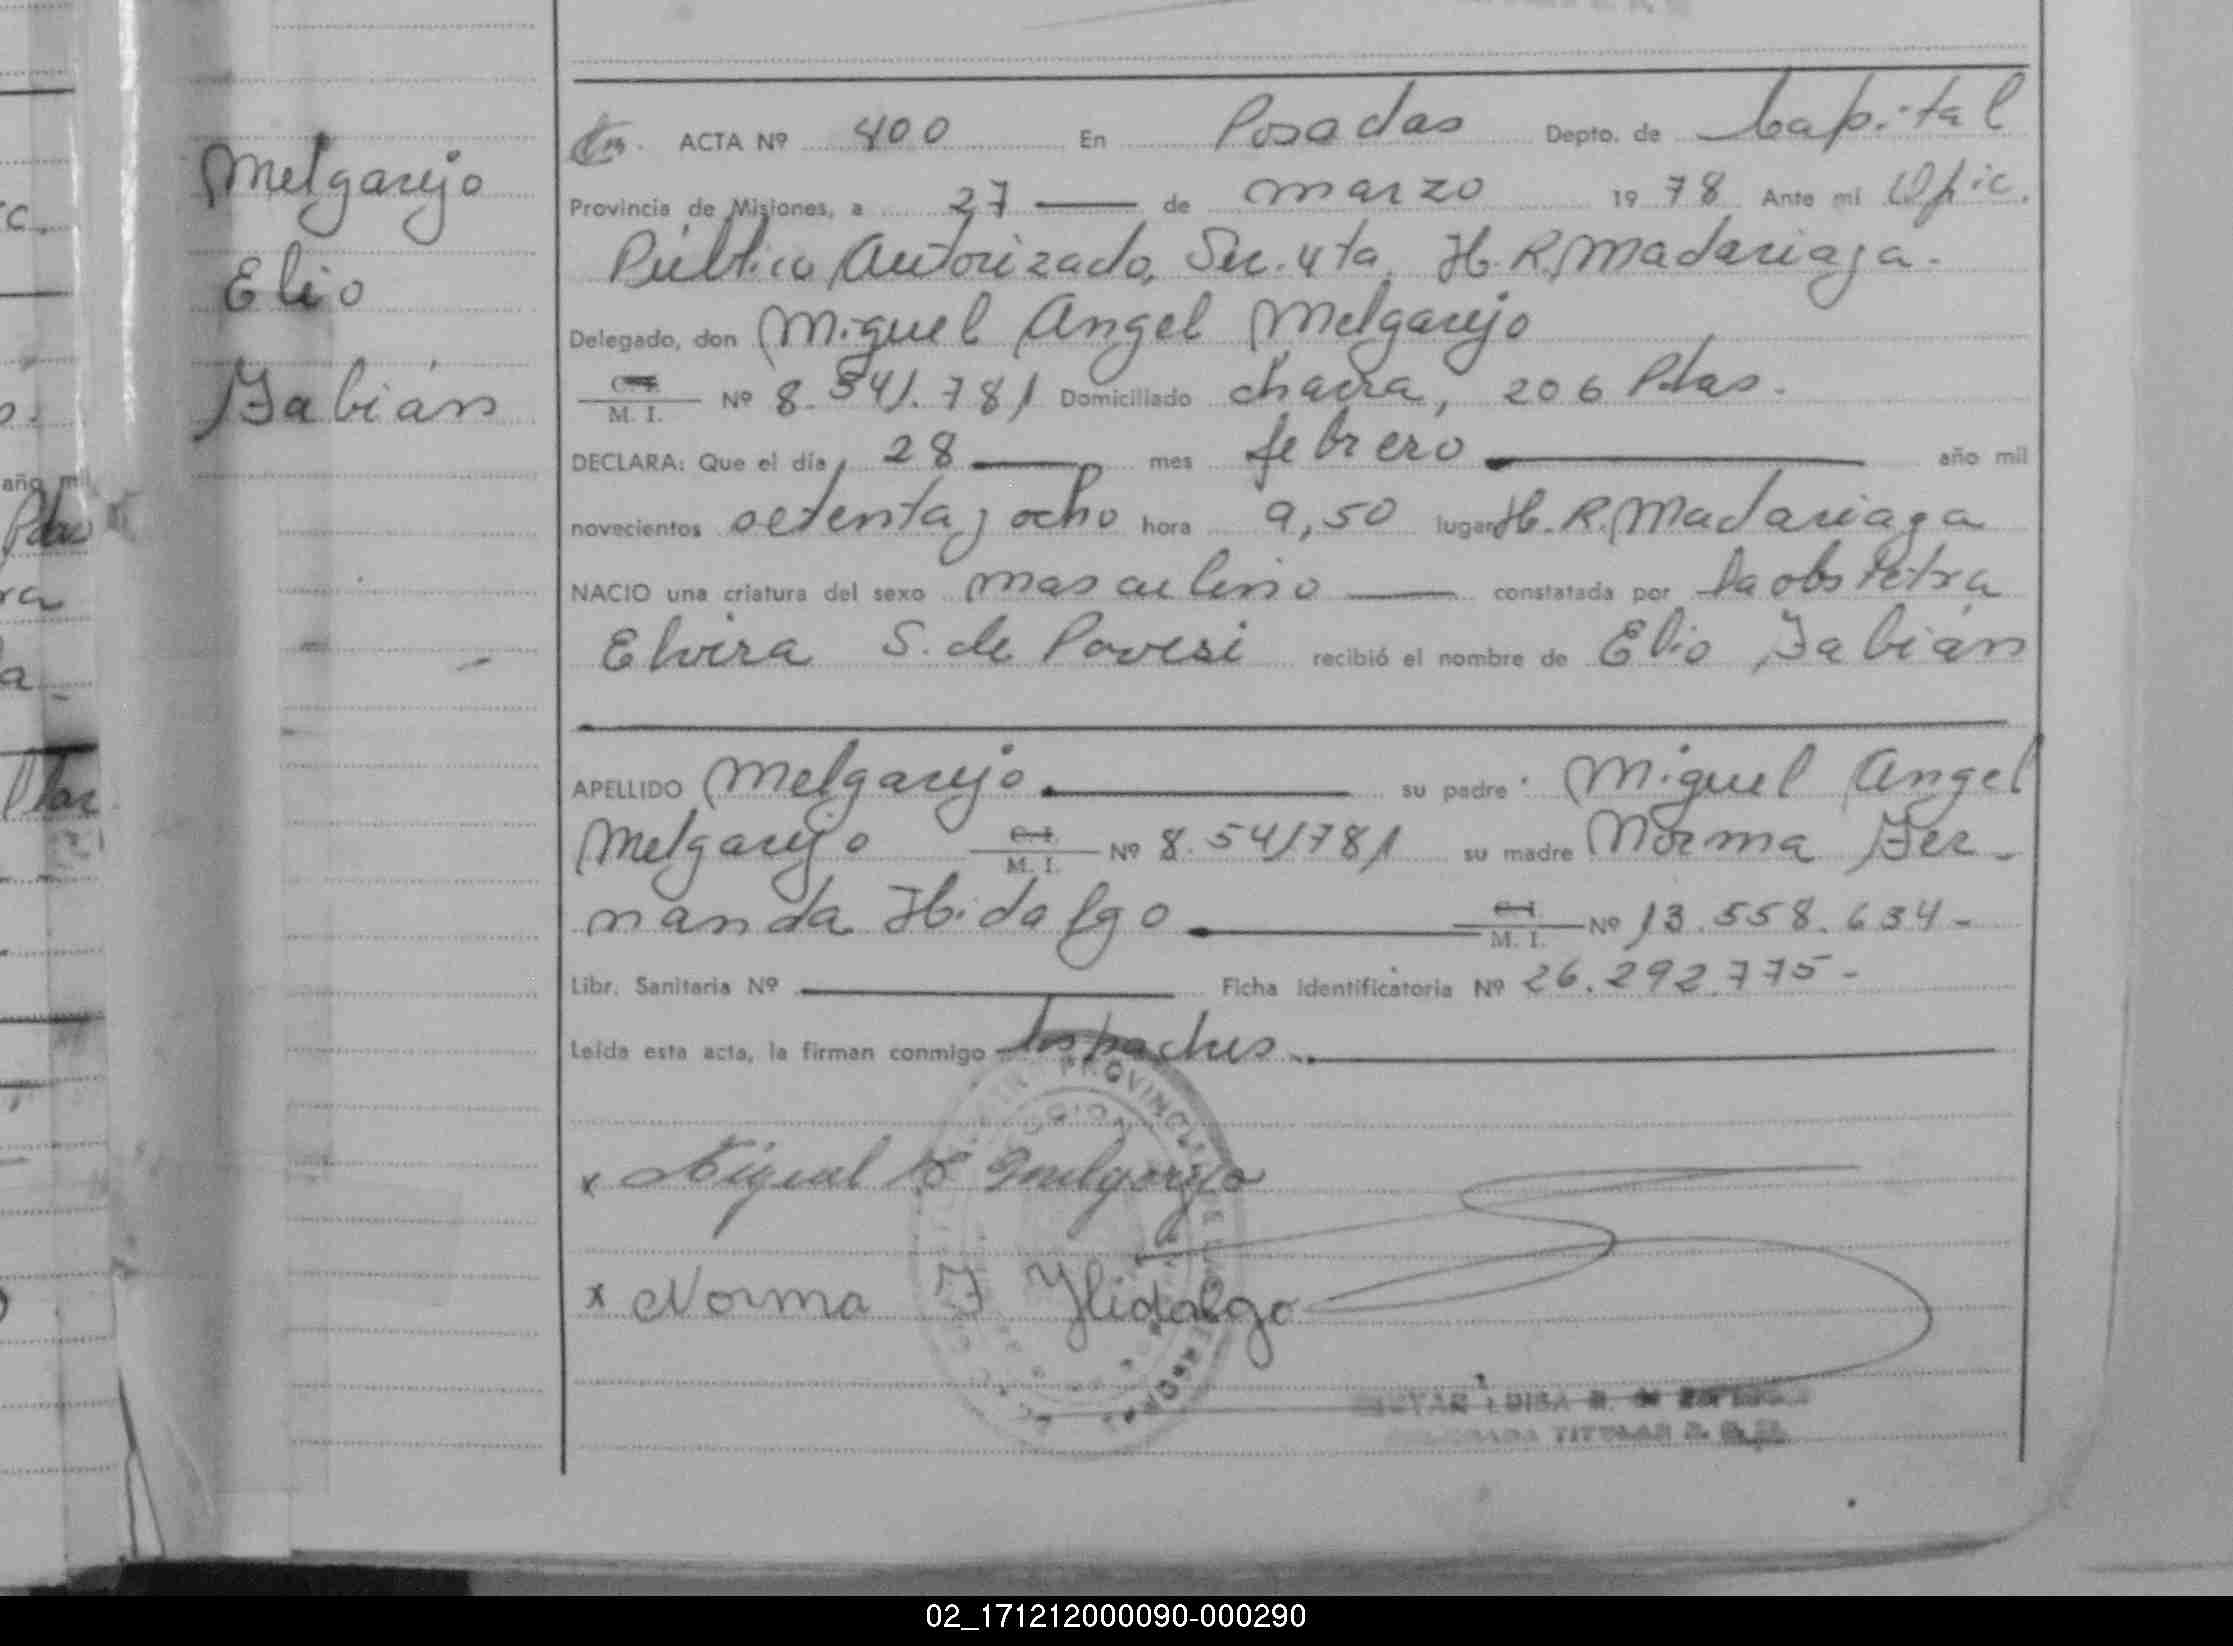 Melgarejo
Elio
Fabián
ACTA Nº 400 En Posadas Depto. de Capital
Provincia de Misiones, a 27 de marzo 1978 Ante mi Ofic.
Público Autorizado, Sec. 4ta. H. R. Madariaga.
Delegado, don Miguel Angel Melgarejo
C.I.
M. I. Nº 8.541.781 Domiciliado chacra, 206 Pdas.
DECLARA: Que el día, 28 mes febrero año mil
novecientos setenta y ocho hora 9,50 lugar H. R. Madariaga
NACIO una criatura del sexo masculino constatada por la obstetra
Elvira S. de Povesi recibió el nombre de Elio Fabián
APELLIDO Melgarejo su padre Miguel Angel
Melgarejo C.I.
M. I. Nº 8.541781 su madre Norma Fer-
nanda Hidalgo C.I.
M. I. Nº 13.558.634-
Libr. Sanitaria Nº Ficha Identificatoria Nº 26.292.775-
Leída esta acta, la firman conmigo los padres.
x Miguel A Melgarejo
x Norma F Hidalgo
02_171212000090-000290